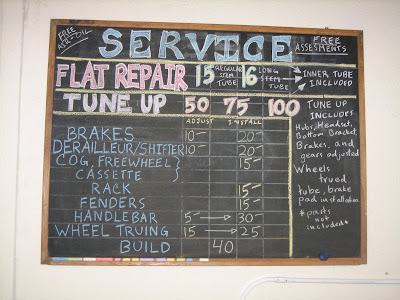 FREE AIR-OIL
SERVICE
FREE ASSESMENTS
FLAT REPAIR 15 REGULAR STEM TUBE 16 LONG STEM TUBE → INNER TUBE INCLUDED
TUNE UP 50 75 100 TUNE UP INCLUDES
ADJUST INSTALL
BRAKES 10- 20-
DERAILLEUR/SHIFTER 10- 20-
COG, FREEWHEEL } 15-
CASSETTE
RACK 15-
FENDERS 15-
HANDLEBAR 5 → 30-
WHEEL TRUING 15 → 25
BUILD 40
Hubs, Headset,
Bottom Bracket,
Brakes, and
gears adjusted
Wheels
trued
tube, brake
pad installation
*parts
not
included*